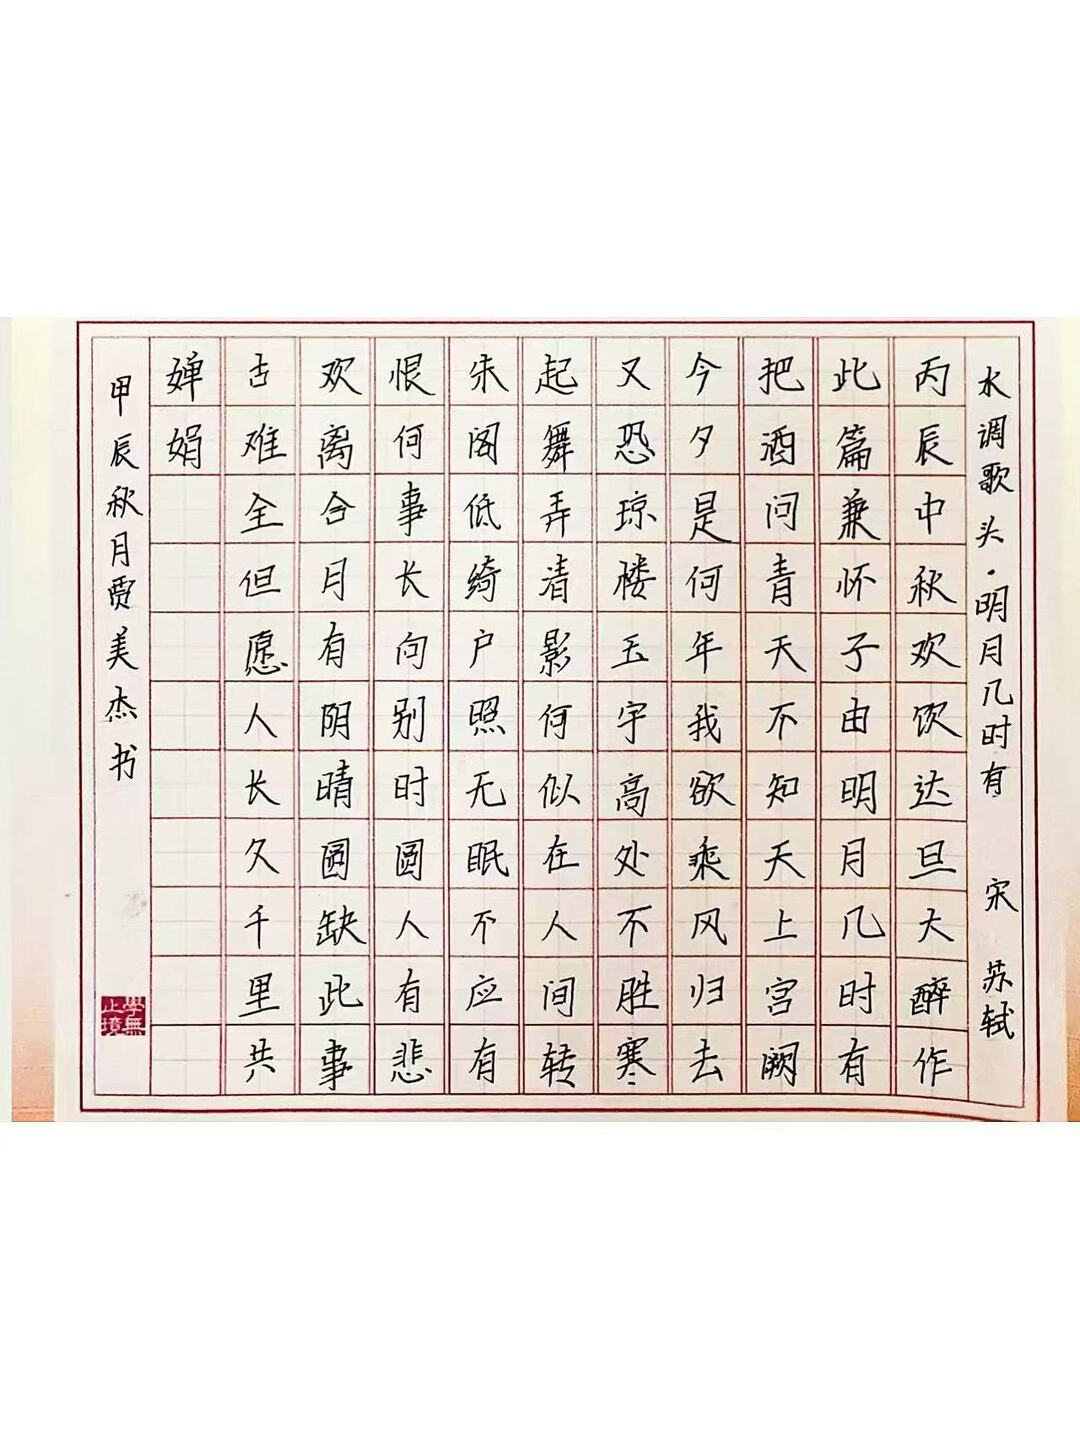 水调歌头·明月几时有 宋 苏轼
丙辰中秋欢饮达旦大醉作
此篇兼怀子由明月几时有
把酒问青天不知天上宫阙
今夕是何年我欲乘风归去
又恐琼楼玉宇高处不胜寒
起舞弄清影何似在人间转
朱阁低绮户照无眠不应有
恨何事长向别时圆人有悲
欢离合月有阴晴圆缺此事
古难全但愿人长久千里共
婵娟
甲辰秋月贾美杰书
學無止境